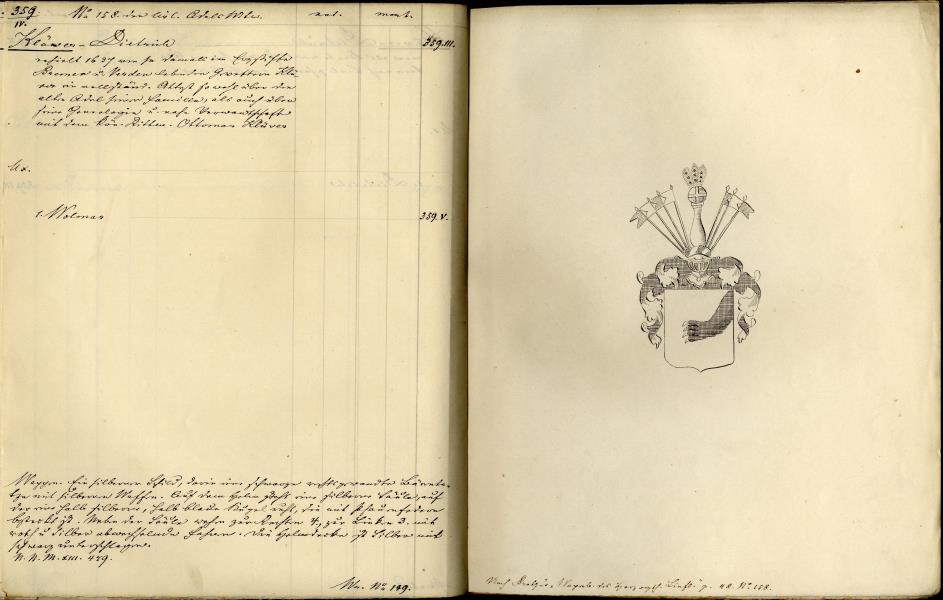 359. No 158. der livl. Adels Mtr. nat. mort.
IV.
Klüwer - Dietrich 359. III.
erhielt 1637 von damals im Erzstifte
Bremen u. Verden lebenden Gevettern Klü-
wer ein vollständ. Attest sowohl über den
alten Adel seiner Familie, als auch über
seine Genealogie u. nahe Verwandtschaft
mit dem Ritter. Ottomar Klüver
Ux.
1. Wolmar 359. V.
Wappen. Ein silberner Schild, darin eine schwarze rechtsgewandte Bärenta-
tze mit silbernen Waffen. Auf dem Helm steht eine silberne Säule, auf
der eine halb silberne, halb blaue Kugel ruht, die mit Pfauenfedern
besteckt ist. Neben der Säule zur Rechten 4, zur Linken 3. mit
roth u. Silber abwechselnde Fahnen. Die Helmdecke ist Silber und
schwarz unterschlagen.
N. N. M. XIII. 449.
Wa. No 149.
Nach Wappen des livl. p. 48. No 158.